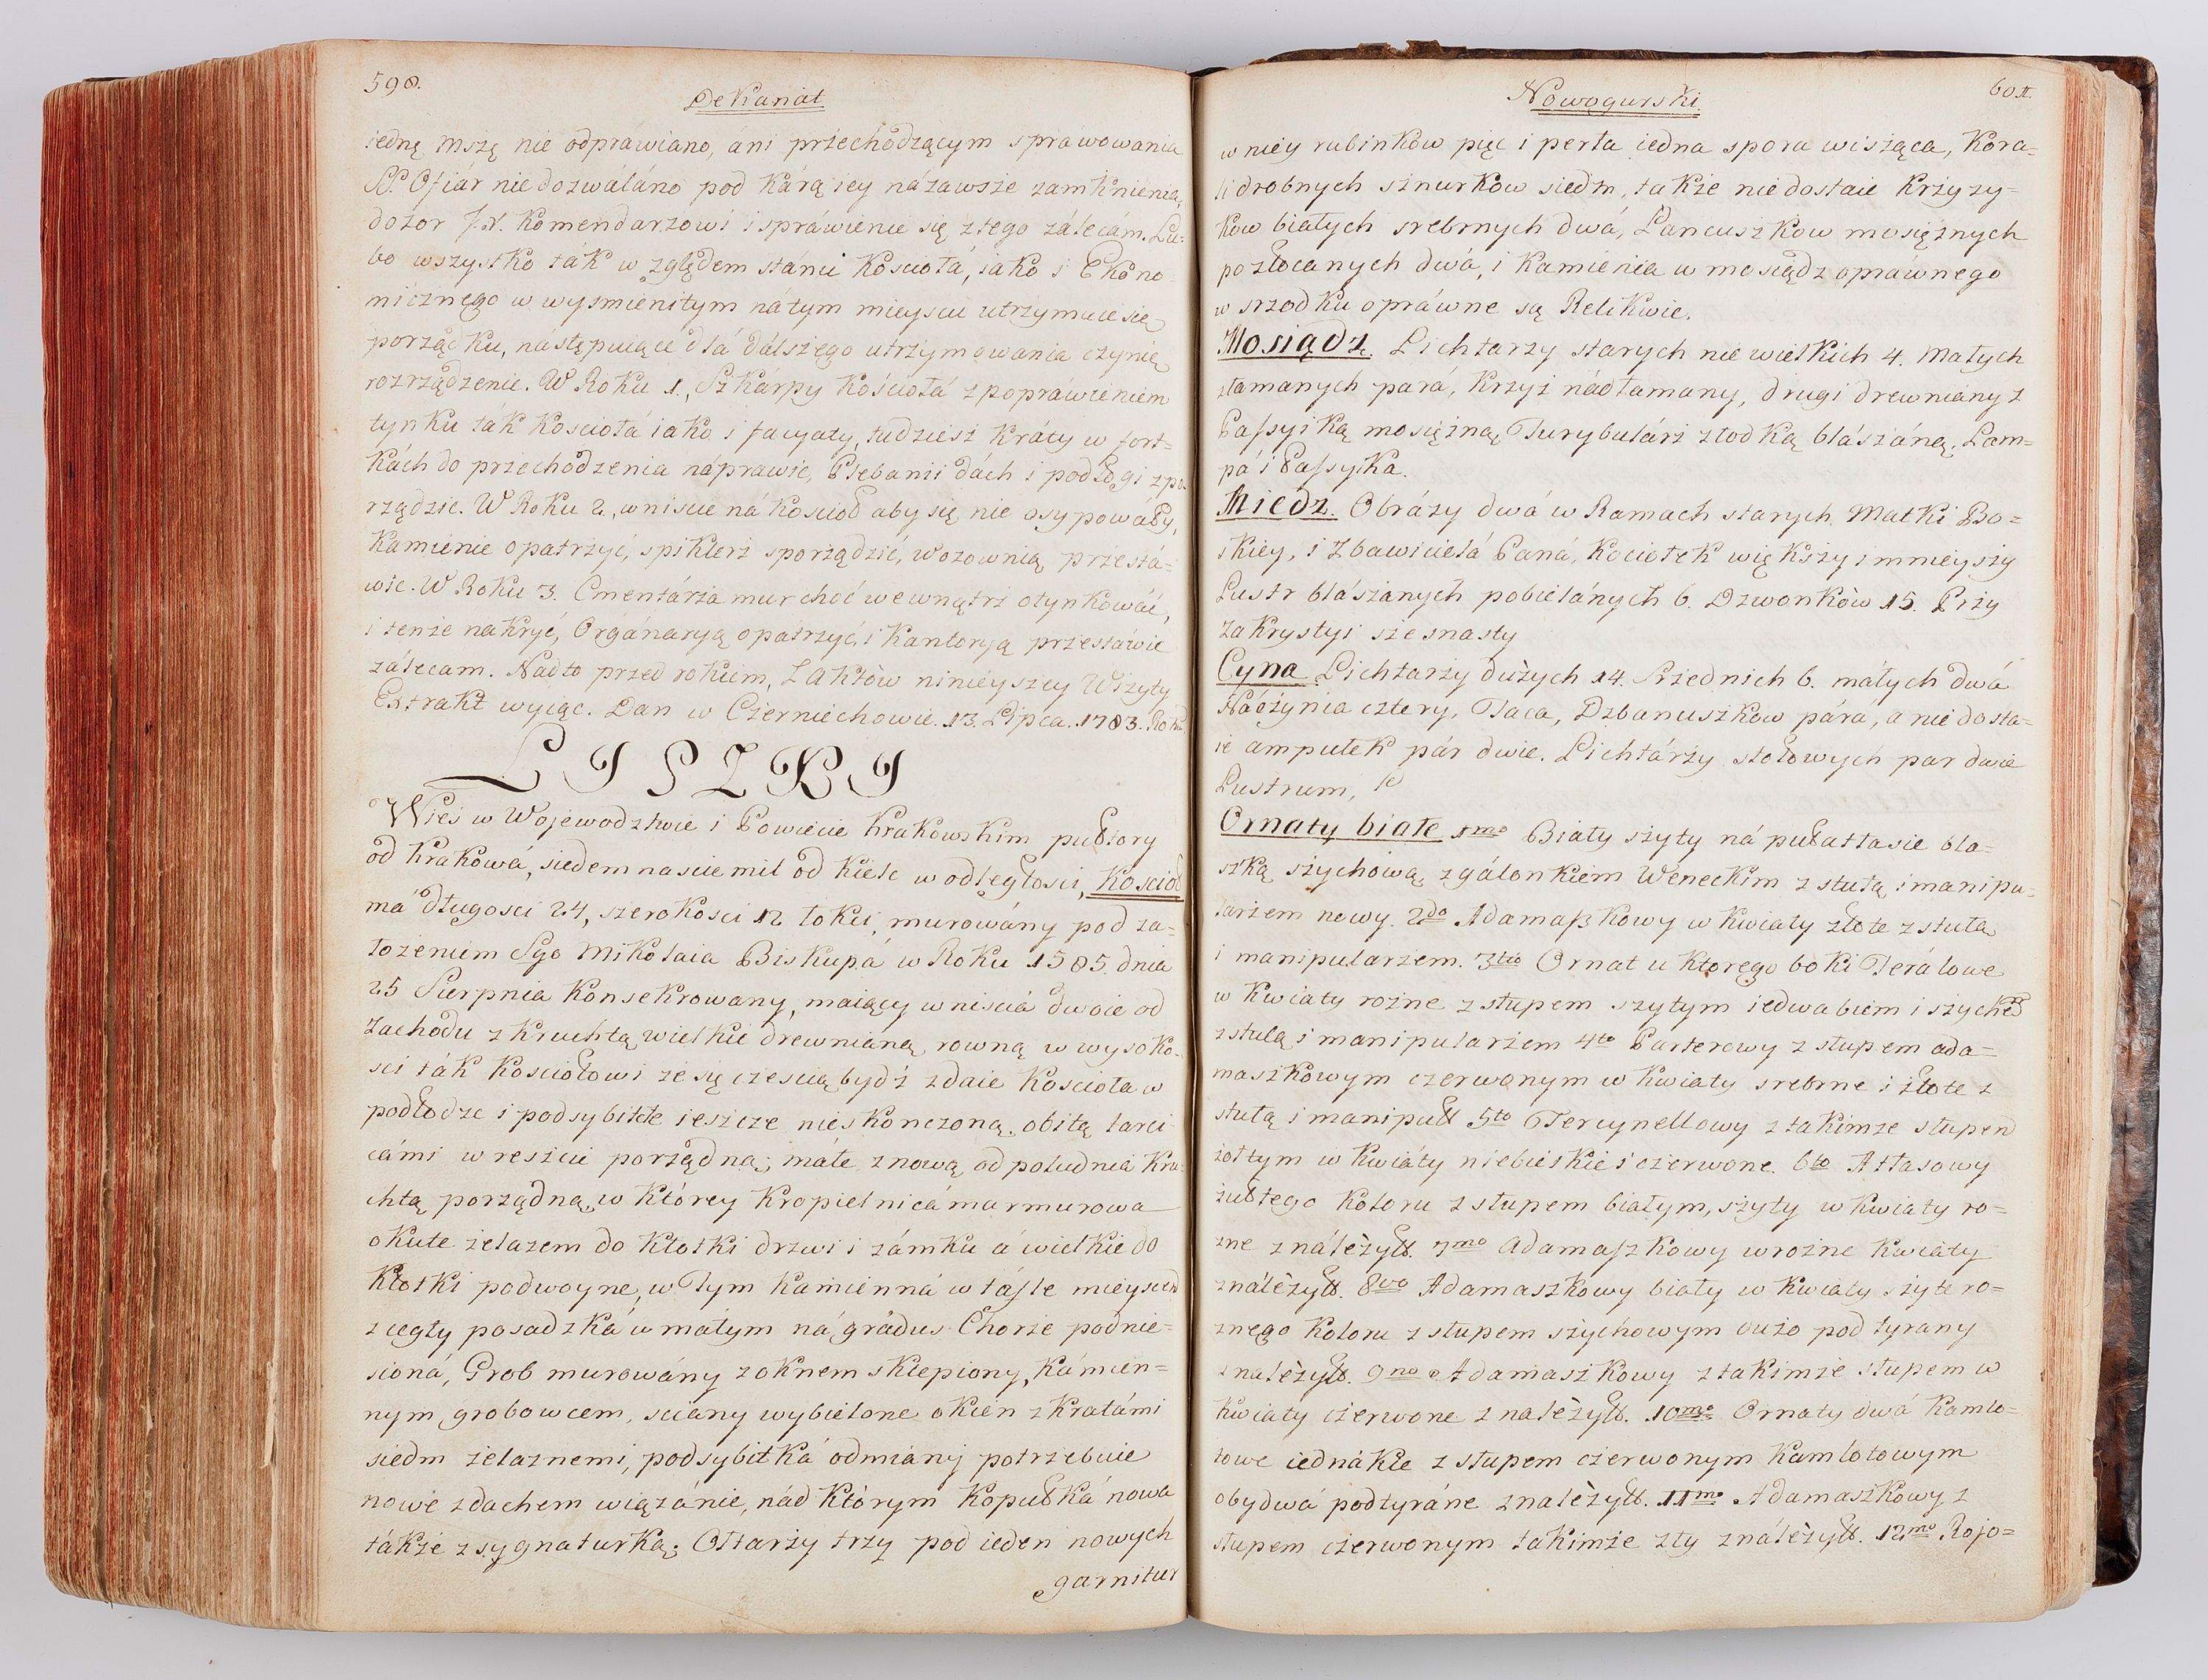 598.
Dekanat
iednę mszę nie odprawiano, áni przechodzącym sprawowania
SS. Ofiár nie dozwaláno pod kárą iey názawsze zamknienia,
dozor J.X. Komendarzowi i spráwienie się z tego zálecám. Lu=
bo wszystko ták względem stánu Kościołá, iáko i Ekono
micznego w wyśmienitym ná tym mieyscu utrzymuie się
porządku, następuiące dlá dálszego utrzymowania czynię
rozrządzenie. W Roku 1., Szkárpy Kościołá z popráwieniem
tynku ták Kościołá iako i facyaty, tudziesz kráty w fort=
kách do przechodzenia náprawic, Plebanii dách i podłogi zpo
rządzic. W Roku 2., wniscie ná kosciół aby się nie osypowáły,
Kamienie opatrzyć, spiklerz sporządzić, wozownią przestá=
wic. W Roku 3. Cmentárza mur choć wewnątrz otynkowáć,
i tenze nakryć, Orgánaryą opatrzyć, i Kantoryą przestawic
zálecam. Nadto przed rokiem, z Aktów ninieyszey Wizyty
Extrakt wyiąc. Dan w Czerniechowie. 13. Lipca. 1783. Roku
LISZKI
Wieś w Wojewodztwie i Powiecie Krakowskim pułtory
od Krakowá, siedemnascie mil od Kielc w odległosci, Kościoł
má długosci 24, szerokosci 12 łokci, murowány pod za=
łożeniem Sgo Mikołaia Biskupá w Roku 1585. dnia
25 Sierpnia Konsekrowany, maiący wniscia dwoie od
Zachodu z kruchtą wielkie drewnianą rowną w wysoko=
sci ták Kosciołowi ze się częscią bydź zdaie Kościoła w
podłodze i podsybitce ieszcze nieskonczoną. obitą tarci
cámi w reszcie porządną; máłe z nową od południa Kru=
chtą porządną, w którey Kropielnicá marmurowa
okute zelazem do kłotki drzwi i zámku á wielkie do
Kłotki podwoyne, w Tym kamienná w táfle mieyscem
z cegły posadzká w máłym ná grádus Chorze podnie=
sioná, Grob murowány z oknem sklepiony, Kámien=
nym grobowcem, sciany wybielone okien z kratámi
siedm zelaznemi, podsybitká odmiány potrzebuie
nowe z dachem wiązánie, nád którym Kopułká nowa
tákże z sygnaturką; Ołtarzy trzy pod ieden nowych
garnitur
Nowogurski.
601.
w niey rubinkow pięc i perła iedna spora wisząca, Kora=
li drobnych sznurkow siedm, także niedostaie krzyzy=
kow białych srebrnych dwá, Łancuszkow mosiężnych
pozłocanych dwá, i kamienia w mosiądz opráwnego
w srzodku opráwne są Relikwie.
Mosiądz. Lichtarzy starych niewielkich 4. małych
złamanych pará, krzyż nádłamany, drugi drewniany z
Passyiką mosiężną, Turybulárz z łodką blászáną, Lam=
pá i Passyika.
Miedz. Obrázy dwá w Ramach starych Matki Bo=
skiey, i Zbawicielá Paná, Kociołek większy i mnieyszy
Lustr blászanych pobielánych 6. Dzwonków 15. Przy
Zakrystyi szesnasty
Cyna Lichtarzy dużych 14. Srzednich 6. máłych dwá
Náczynia cztery, Taca, Dzbanuszkow párá, a niedosta=
ie ampułek pár dwie. Lichtárzy stołowych par dwie
Lustrum, 1
Ornaty białe 1mo Biały szyty ná pułatłasie bla=
szką szychową, z gálonkiem Weneckim z stułą i manipu=
larzem nowy. 2do Adamaszkowy w kwiaty złote z stułą
i manipularzem. 3tio Ornat u ktorego boki Terálowe
w kwiaty rożne z słupem szytym iedwabiem i szychem
z stułą i manipularzem 4to Parterowy z słupem ada=
maszkowym czerwonym w kwiaty srebrne i złote z
stułą i manipuł 5to Tercynellowy z takimze słupem
żołtym w kwiáty niebieskie i czerwone. 6to Atłasowy
żułtego koloru z słupem białym, szyty w kwiaty ro=
zne z náleżył. 7mo Adamaszkowy w rożne kwiáty
z náleżył. 8vo Adamaszkowy biały w kwiaty szyte ro=
znego koloru z słupem szychowym dużo podtyrany
z należył. 9no Adamaszkowy z takimze słupem w
kwiaty czerwone z należył. 10mo Ornaty dwá kamlo=
towe iednákie z słupem czerwonym kamlotowym
obydwá podtyráne z należył. 11mo Adamaszkowy z
słupem czerwonym takimże zły z náleżył. 12mo Rojo=